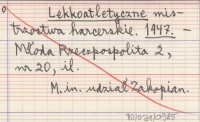 Lekkoatletyczne mis-
trzostwa harcerskie. 1947. -
Młoda Rzeczpospolita 2,
nr 20, il.
M. in. udział Zakopian.